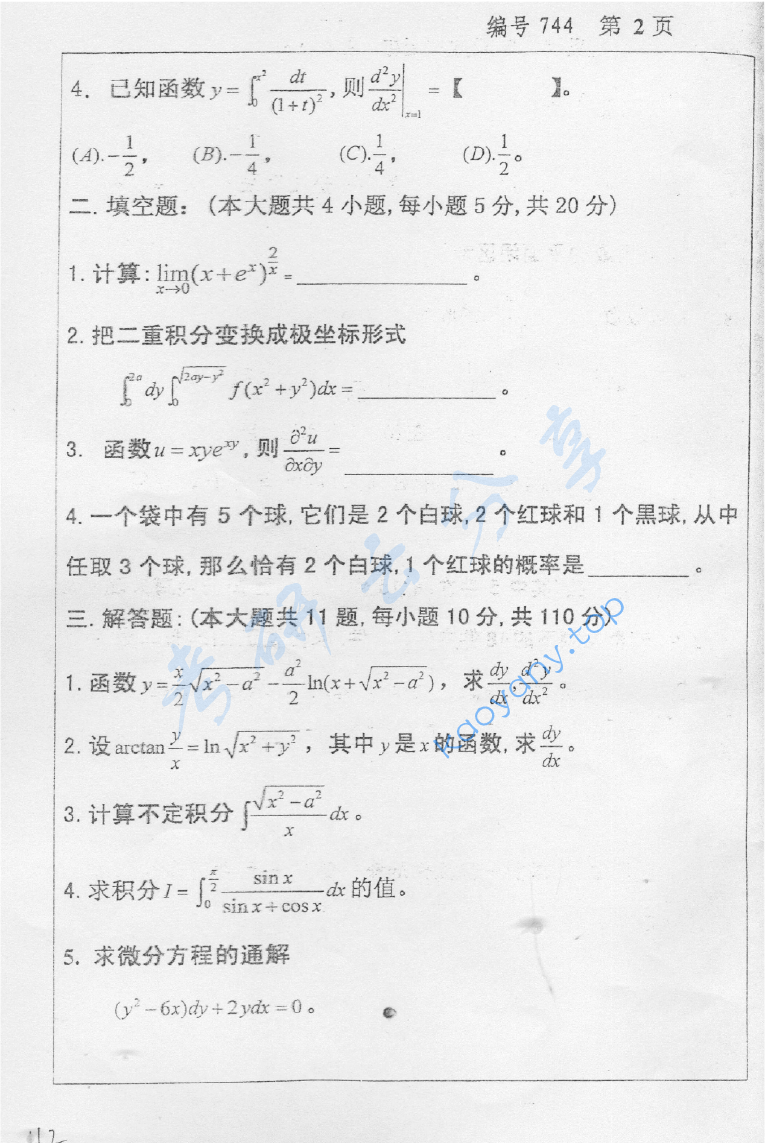 编号 744 第 2 页
4. 已知函数 y = ∫₀^{x²} dt/(1+t)², 则 d²y/dx²|ₓ₌₁ = 【 】。
(A).-1/2, (B).-1/4, (C).1/4, (D).1/2。
二. 填空题: (本大题共 4 小题, 每小题 5 分, 共 20 分)
1. 计算: lim_{x→0}(x+eˣ)^{2/x} = ________ 。
2. 把二重积分变换成极坐标形式
∫₀^{2a} dy ∫₀^{√(2ay-y²)} f(x²+y²)dx = ________ 。
3. 函数 u = xye^{xy}, 则 ∂²u/∂x∂y = ________ 。
4. 一个袋中有 5 个球, 它们是 2 个白球, 2 个红球和 1 个黑球, 从中
任取 3 个球, 那么恰有 2 个白球, 1 个红球的概率是 ________ 。
三. 解答题: (本大题共 11 题, 每小题 10 分, 共 110 分)
1. 函数 y = x/2 √(x²-a²) - a²/2 ln(x+√(x²-a²)), 求 dy/dx, d²y/dx²。
2. 设 arctan y/x = ln √(x²+y²), 其中 y 是 x 的函数, 求 dy/dx。
3. 计算不定积分 ∫ √(x²-a²)/x dx。
4. 求积分 I = ∫₀^{π/2} sin x/(sin x+cos x) dx 的值。
5. 求微分方程的通解
(y²-6x)dy+2ydx=0。
考研云分享
kaoyany.top